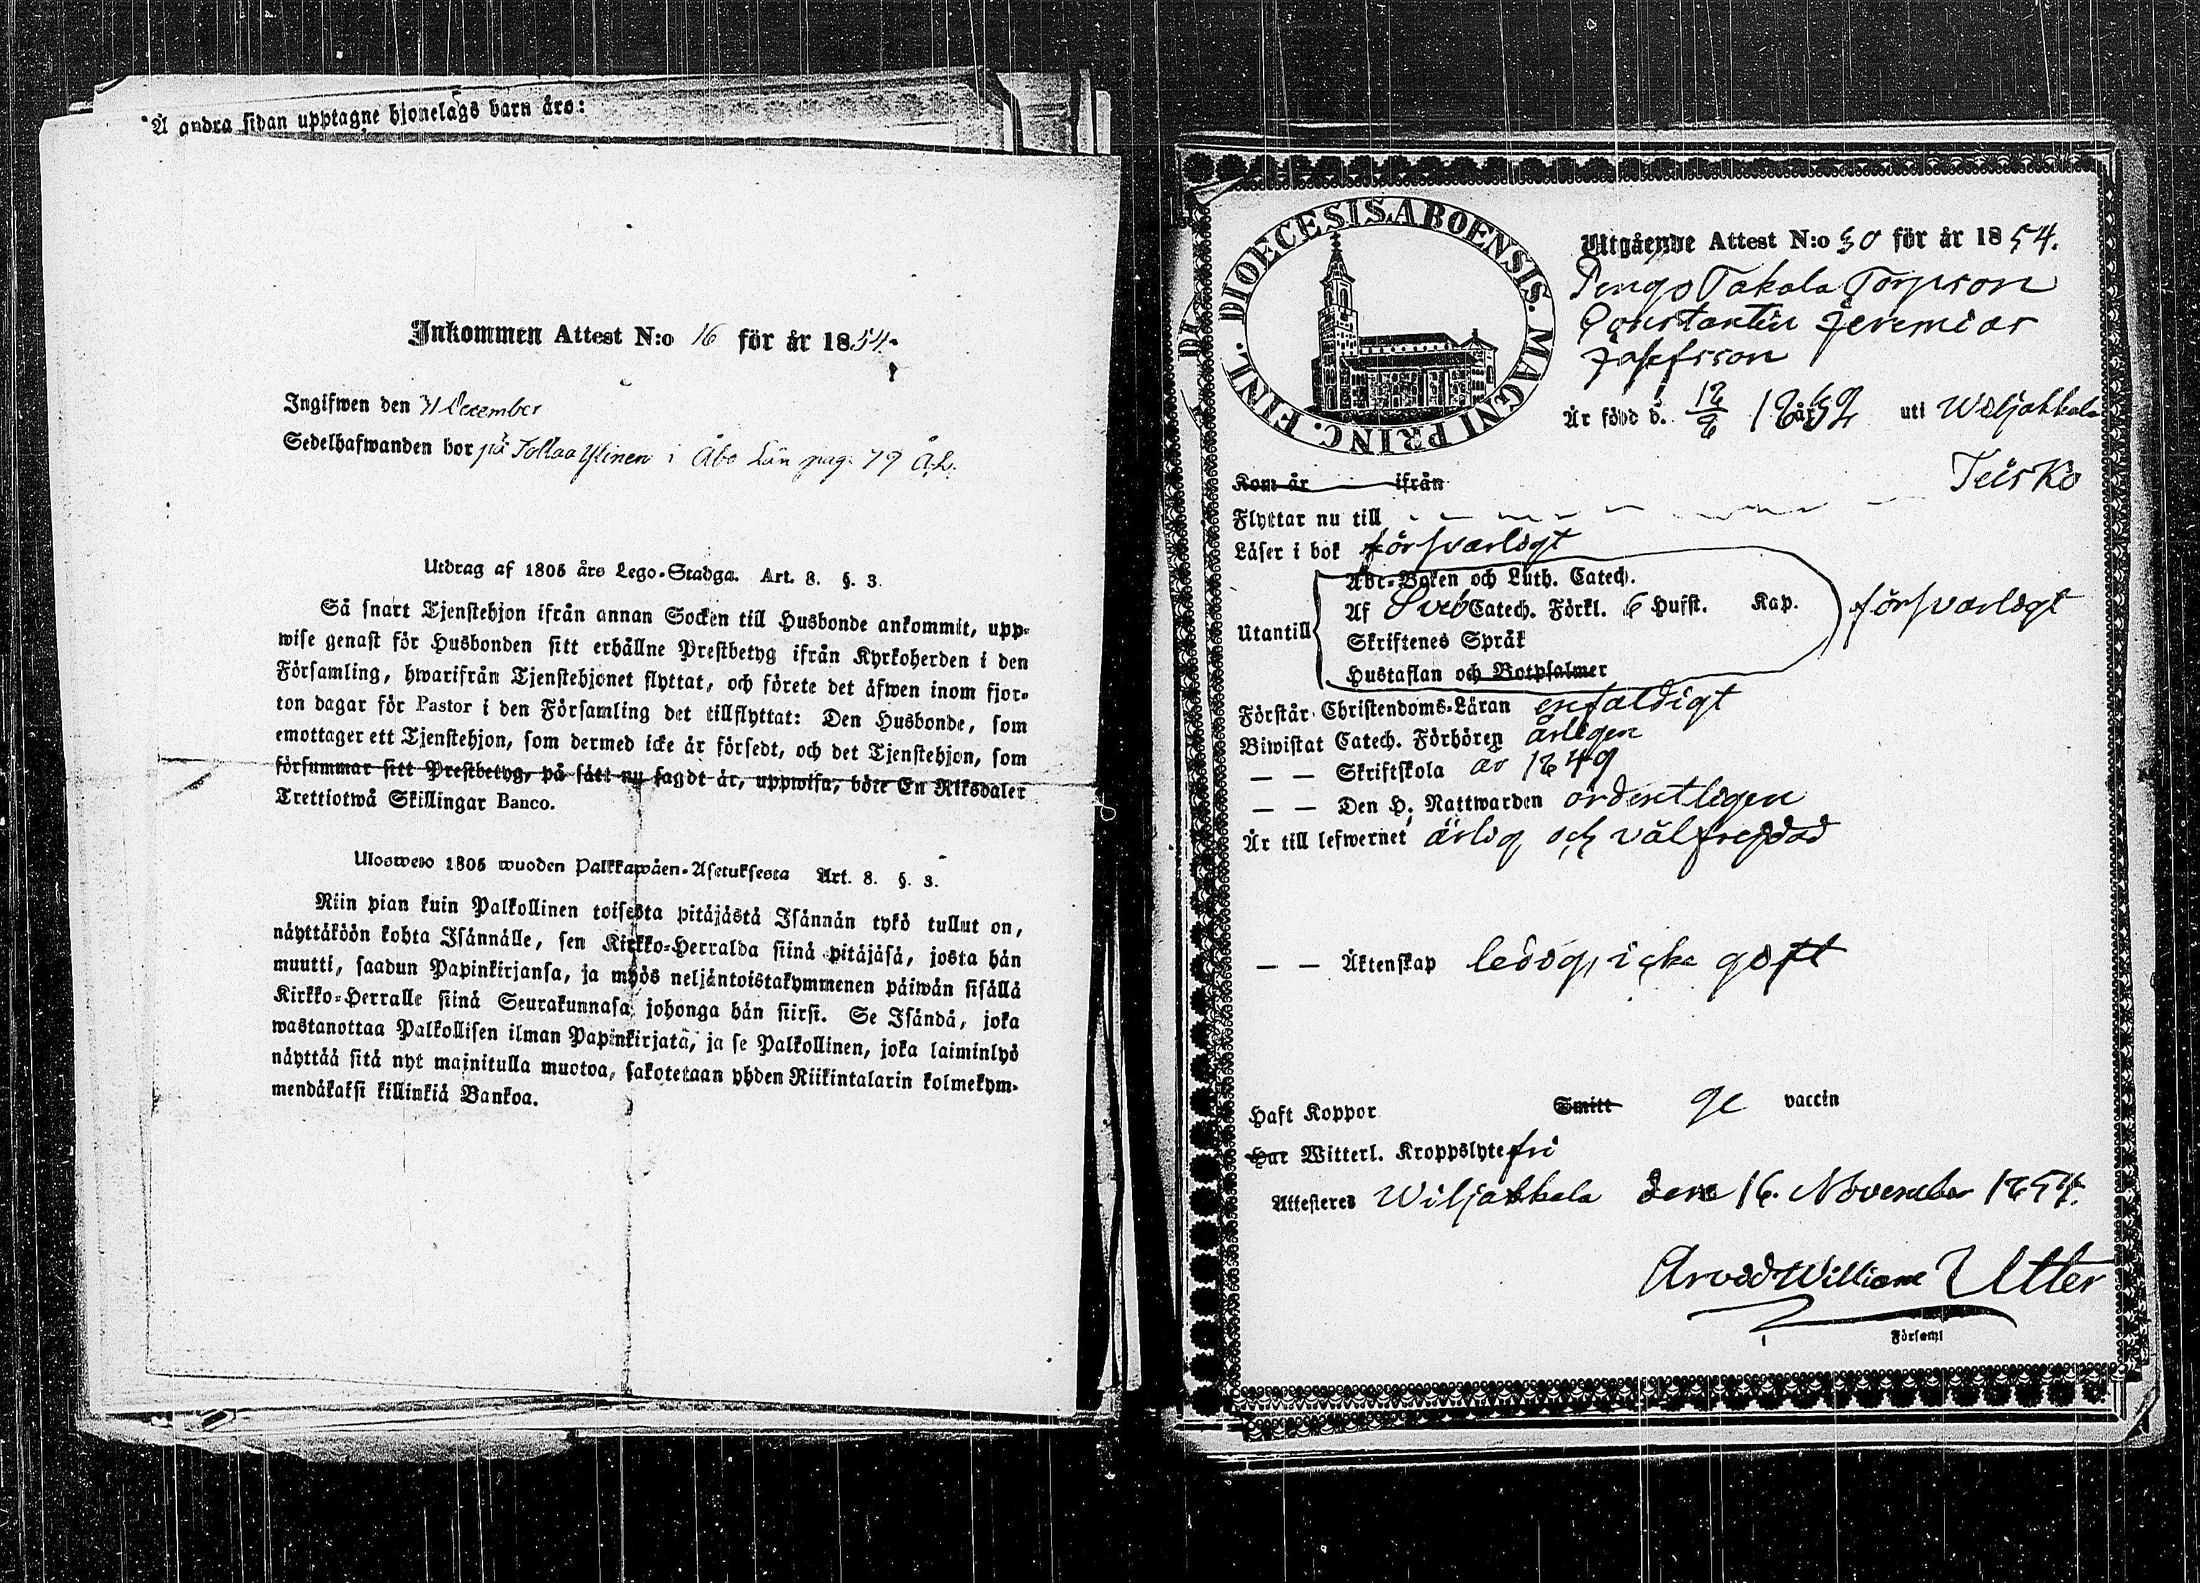 Å andra sidan upptagne hjonelags barn äro:
Inkommen Attest N:o 16 för år 1854.
Ingifwen den 31 December
Sedelhafwanden bor på i Åbo Län pag: 79
Utdrag af 1805 års Lego-Stadga. Art. 8. §. 3.
Så snart Tjenstehjon ifrån annan Socken till Husbonde ankommit, upp-
wise genast för Husbonden sitt erhållne Prestbetyg ifrån Kyrkoherden i den
Församling, hwarifrån Tjenstehjonet flyttat, och förete det äfwen inom fjor-
ton dagar för Pastor i den Församling det tillflyttat: Den Husbonde, som
emottager ett Tjenstehjon, som dermed icke är försedt, och det Tjenstehjon, som
försummar sitt Prestbetyg, på sätt nu sagdt är, uppwisa, böte En Riksdaler
Trettiotwå Skillingar Banco.
Ulosweto 1805 wuoden Palkkawäen-Asetuksesta Art. 8. §. 3.
Niin pian kuin Palkollinen toisesta pitäjästä Isännän tykö tullut on,
näyttäköön kohta Isännälle, sen Kirkko-Herralda siinä pitäjäsä, josta hän
muutti, saadun Papinkirjansa, ja myös neljäntoistakymmenen päiwän sisällä
Kirkko-Herralle siinä Seurakunnasa, johonga hän siirsi. Se Isändä, joka
wastanottaa Palkollisen ilman Papinkirjatä, ja se Palkollinen, joka laiminlyö
näyttää sitä nyt mainitulla muotoa, sakotetaan yhden Riikintalarin kolmekym-
mendäkaksi killinkiä Bankoa.
DIOECESIS. ABOENSIS. MAGNI PRINC. FINL.
Utgående Attest N:o 30 för år 1854.
Takala Torpson
Constantin Jeremias
Josefsson
År född d. 18 uti Wiljakkala
Kom år ifrån Teisko
Flyttar nu till
Läser i bok försvarligt
Abc-Boken och Luth. Catech.
Af Sveb Catech. Förkl. 6 Hufst. Kap.
Utantill försvarligt
Skriftenes Språk
Hustaflan och Botpsalmer
Förstår Christendoms-Läran enfaldigt
Biwistat Catech. Förhören årligen
— — Skriftskola år 1849
— — Den H. Nattwarden ordentligen
Är till lefwernet ärlig och välfrejdad
— — Äktenskap ledig, icke gift
Haft Koppor Smitt ge vaccin
Har Witterl. Kroppslyte fri
Attesteres Wiljakkala den 16. November 1854.
Arvid William Utter
Församl